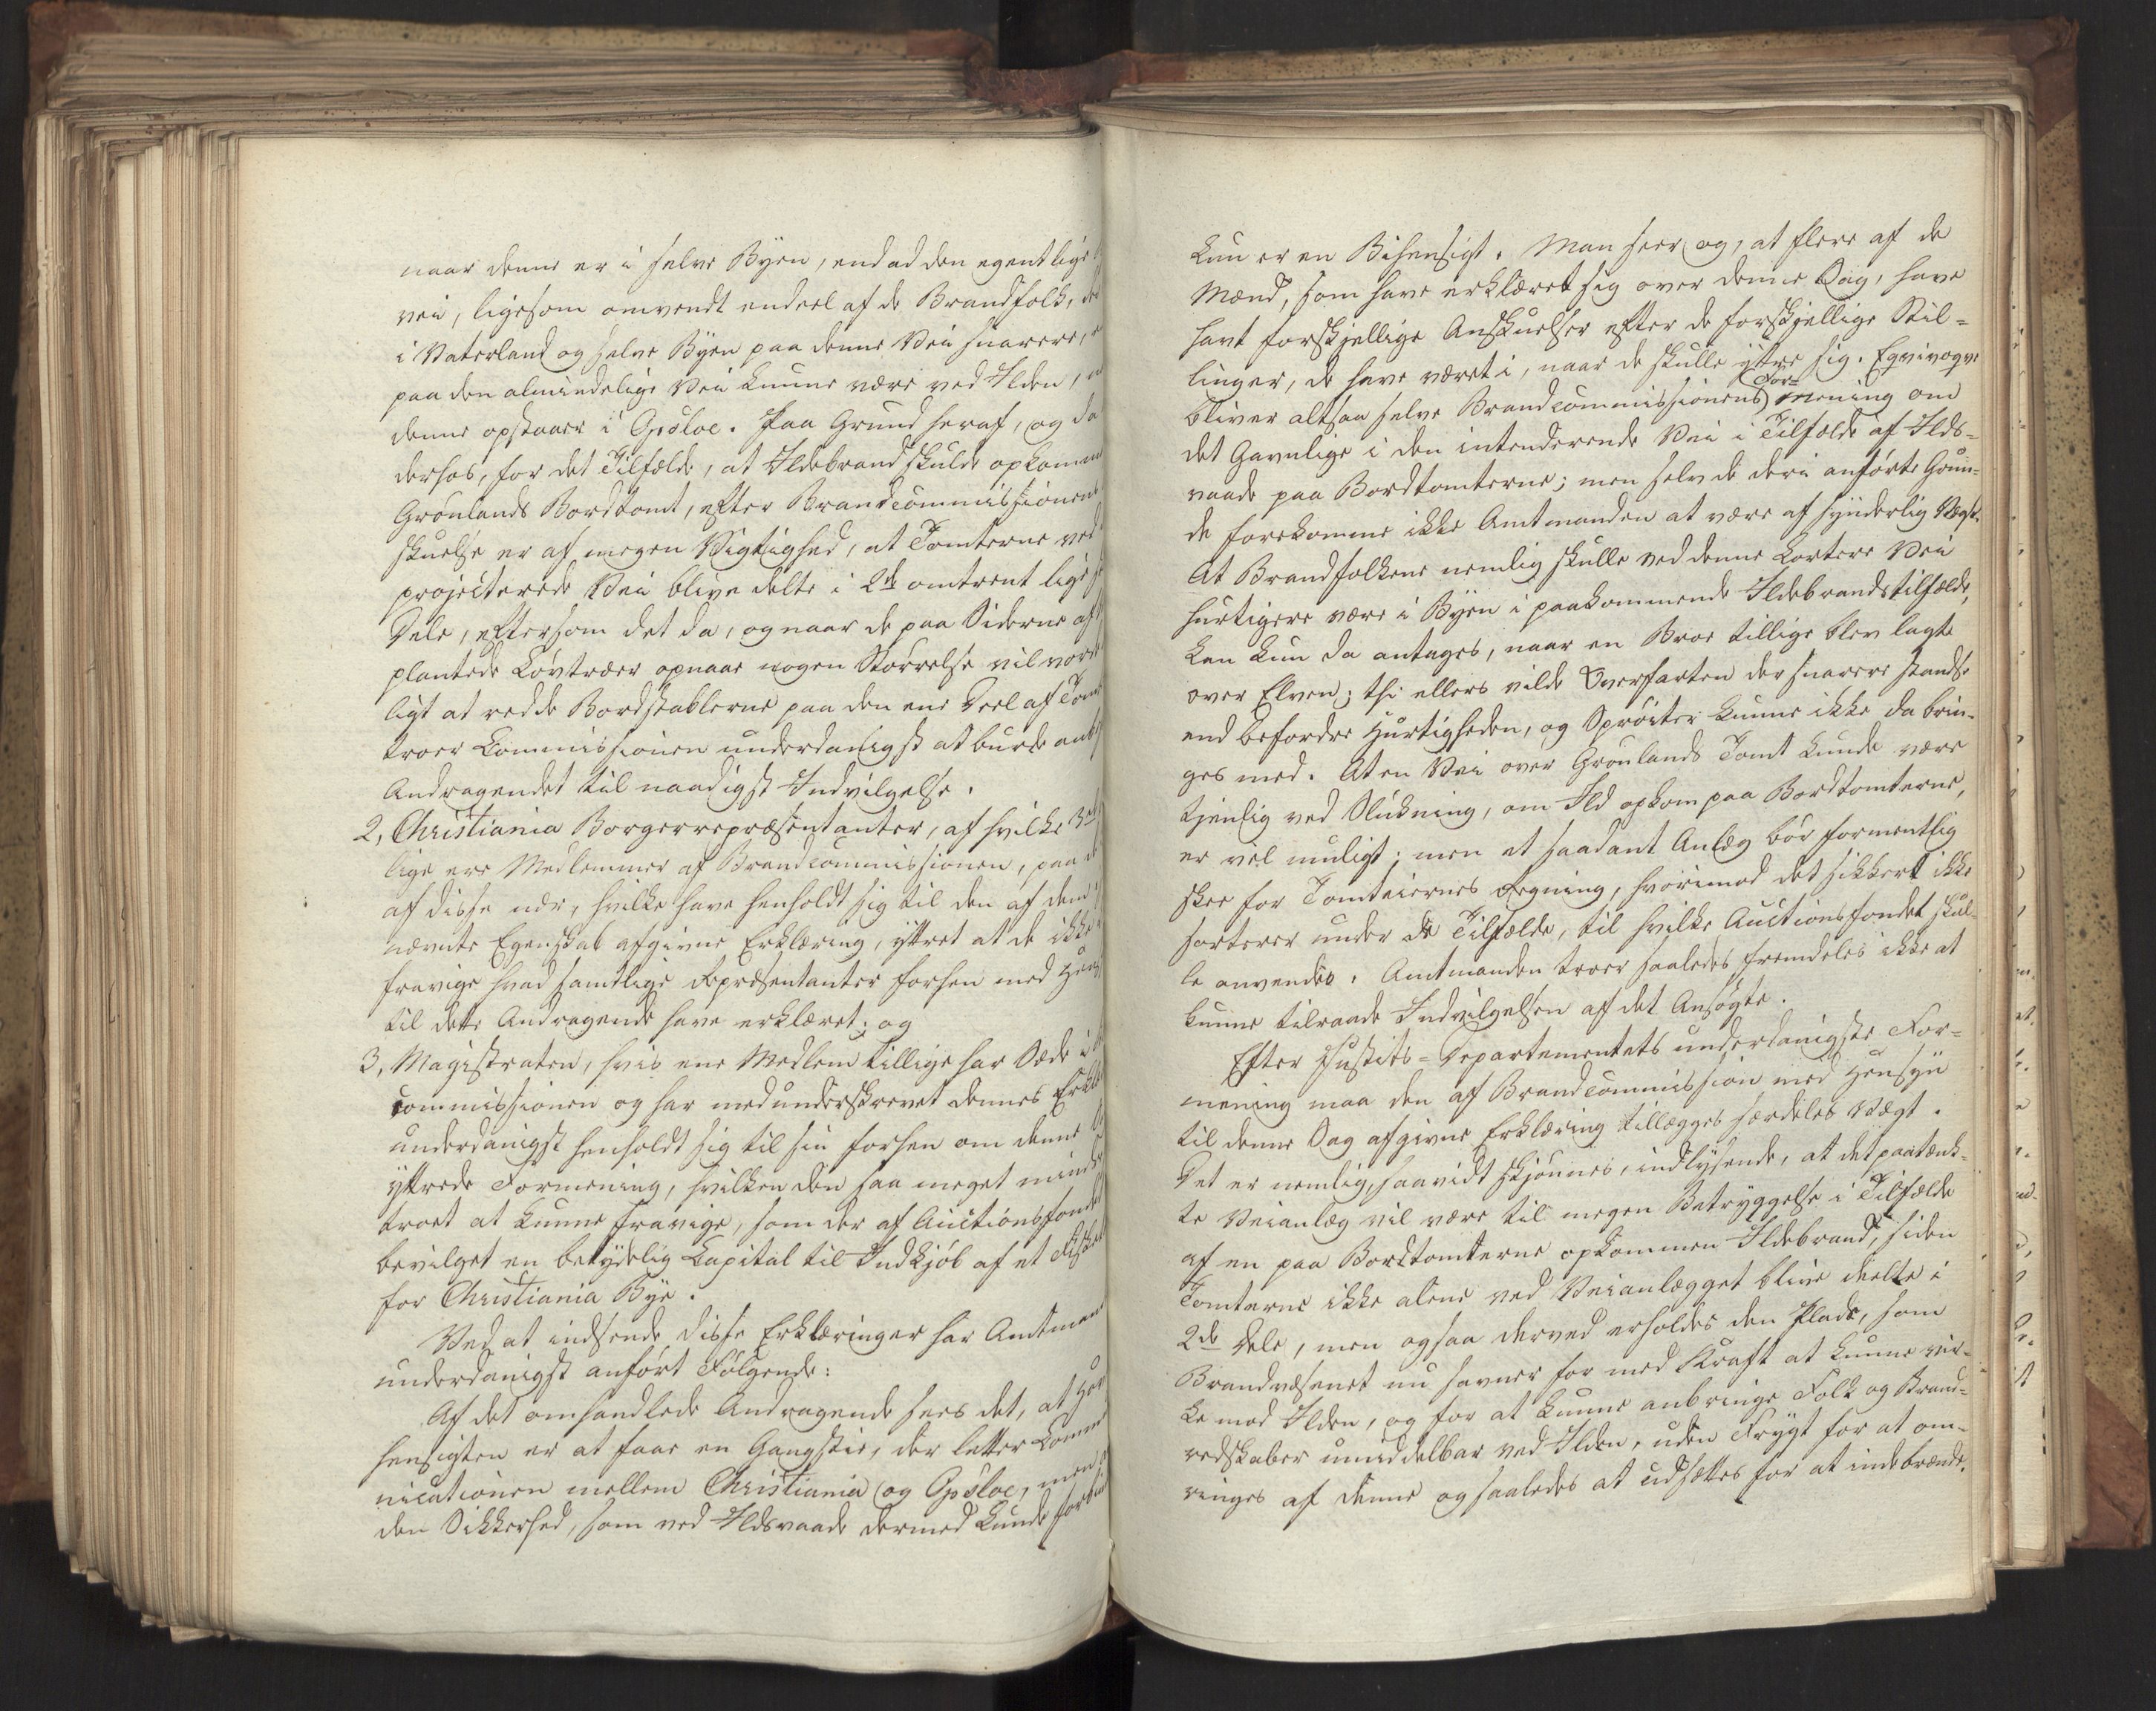 naar denne er i selve Byen, end ad den egentlige
vei, ligesom omvendt endeel af de Brandfolk, der
i Vaterland og selve Byen paa denne Vei snarere,
paa den almindelige Vei kunne være ved Ilden,
denne opstaaer i Opsloe. Paa Grund heraf, og da
derhos, for det Tilfælde, at Ildebrand skulde opkomme
Grønlands Bordtomt, efter Brandcommissionens
skuelse er af megen Vigtighed, at Tomterne ved
projecterede Vei blive delte i 2de omtrent lige
Dele, eftersom det da, og naar de paa Siderne af
plantede Løvtræer opnaae nogen Størrelse vil vorde
ligt at redde Bordstablerne paa den ene Deel af
troer Commissionen underdanigst at burde
Andragendet til naadigst Indvilgelse.
2, Christiania Borgerrepræsentanter, af hvilke
lige ere Medlemmer af Brandcommissionen, paa
af disse nær, hvilke have henholdt sig til den af dem
nævnte Egenskab afgivne Erklæring, yttret at de ikke
fravige hvad samtlige Repræsentanter forhen med
til dette Andragende have erklæret; og
3, Magistraten, hvis ene Medlem tillige har Sæde i
commissionen og har medunderskrevet dennes
underdanigst henholdt sig til sin forhen om denne
yttrede Formening, hvilken den saa meget mindre
troet at kunne fravige, som der af Auctionsfondet
bevilget en betydelig Capital til Indkjøb af et
for Christiania Bye.
Ved at indsende disse Erklæringer har Amtmanden
underdanigst anført Følgende:
Af det omhandlede Andragende sees det, at
hensigten er at faae en Gangstie, der letter
nicationen mellem Christiania og Opsloe, men
den Sikkerhed, som ved Ildsvaade dermed kunde
kun er en Bihensigt. Man seer og, at flere af de
Mænd, som have erklæret sig over denne Sag, have
havt forskjellige Anskuelser efter de forskjellige Stil-
linger, de have været i, naar de skulle yttre sig. Eqvivoqve
bliver altsaa selve Brandcommissionens For-mening om
det Gavnlige i den intenderende Vei i Tilfælde af Ilds-
vaade paa Bordtomterne; men selv de deri anførte Grun-
de forekomme ikke Amtmanden at være af synderlig Vægt.
At Brandfolkene nemlig skulle ved denne kortere Vei
hurtigere være i Byen i paakommende Ildebrandstilfælde,
kan kun da antages, naar en Broe tillige blev lagte
over Elven; thi ellers vilde Overfarten der snarere standse
end befordre Hurtigheden, og Sprøiter kunne ikke da brin-
ges med. At en Vei over Grønlands Tomt kunde være
tjenlig ved Slukning, om Ild opkom paa Bordtomterne,
er vel muligt; men et saadant Anlæg bør formentlig
skee for Tomteiernes Regning, hvorimod det sikkert ikke
sorterer under de Tilfælde, til hvilke Auctionsfondet skul-
le anvendes. Amtmanden troer saaledes fremdeles ikke at
kunne tilraade Indvilgelsen af det Ansøgte.
Efter Justits-Departementets underdanigste For-
mening maa den af Brandcommission med Hensyn
til denne Sag afgivne Erklæring tillægges særdeles Vægt.
Det er nemlig, saavidt skjønnes, indlysende, at det paatænk-
te Veianlæg vil være til megen Betryggelse i Tilfælde
af en paa Bordtomterne opkommen Ildebrand, siden
Tomterne ikke alene ved Veianlægget blive deelte i
2de Dele, men ogsaa derved erholdes den Plads, som
Brandvæsenet nu savner for med Kraft at kunne vir-
ke mod Ilden, og for at kunne anbringe Folk og Brand-
redskaber umiddelbar ved Ilden, uden Frygt for at om-
ringes af denne og saaledes at udsættes for at indebrænde.